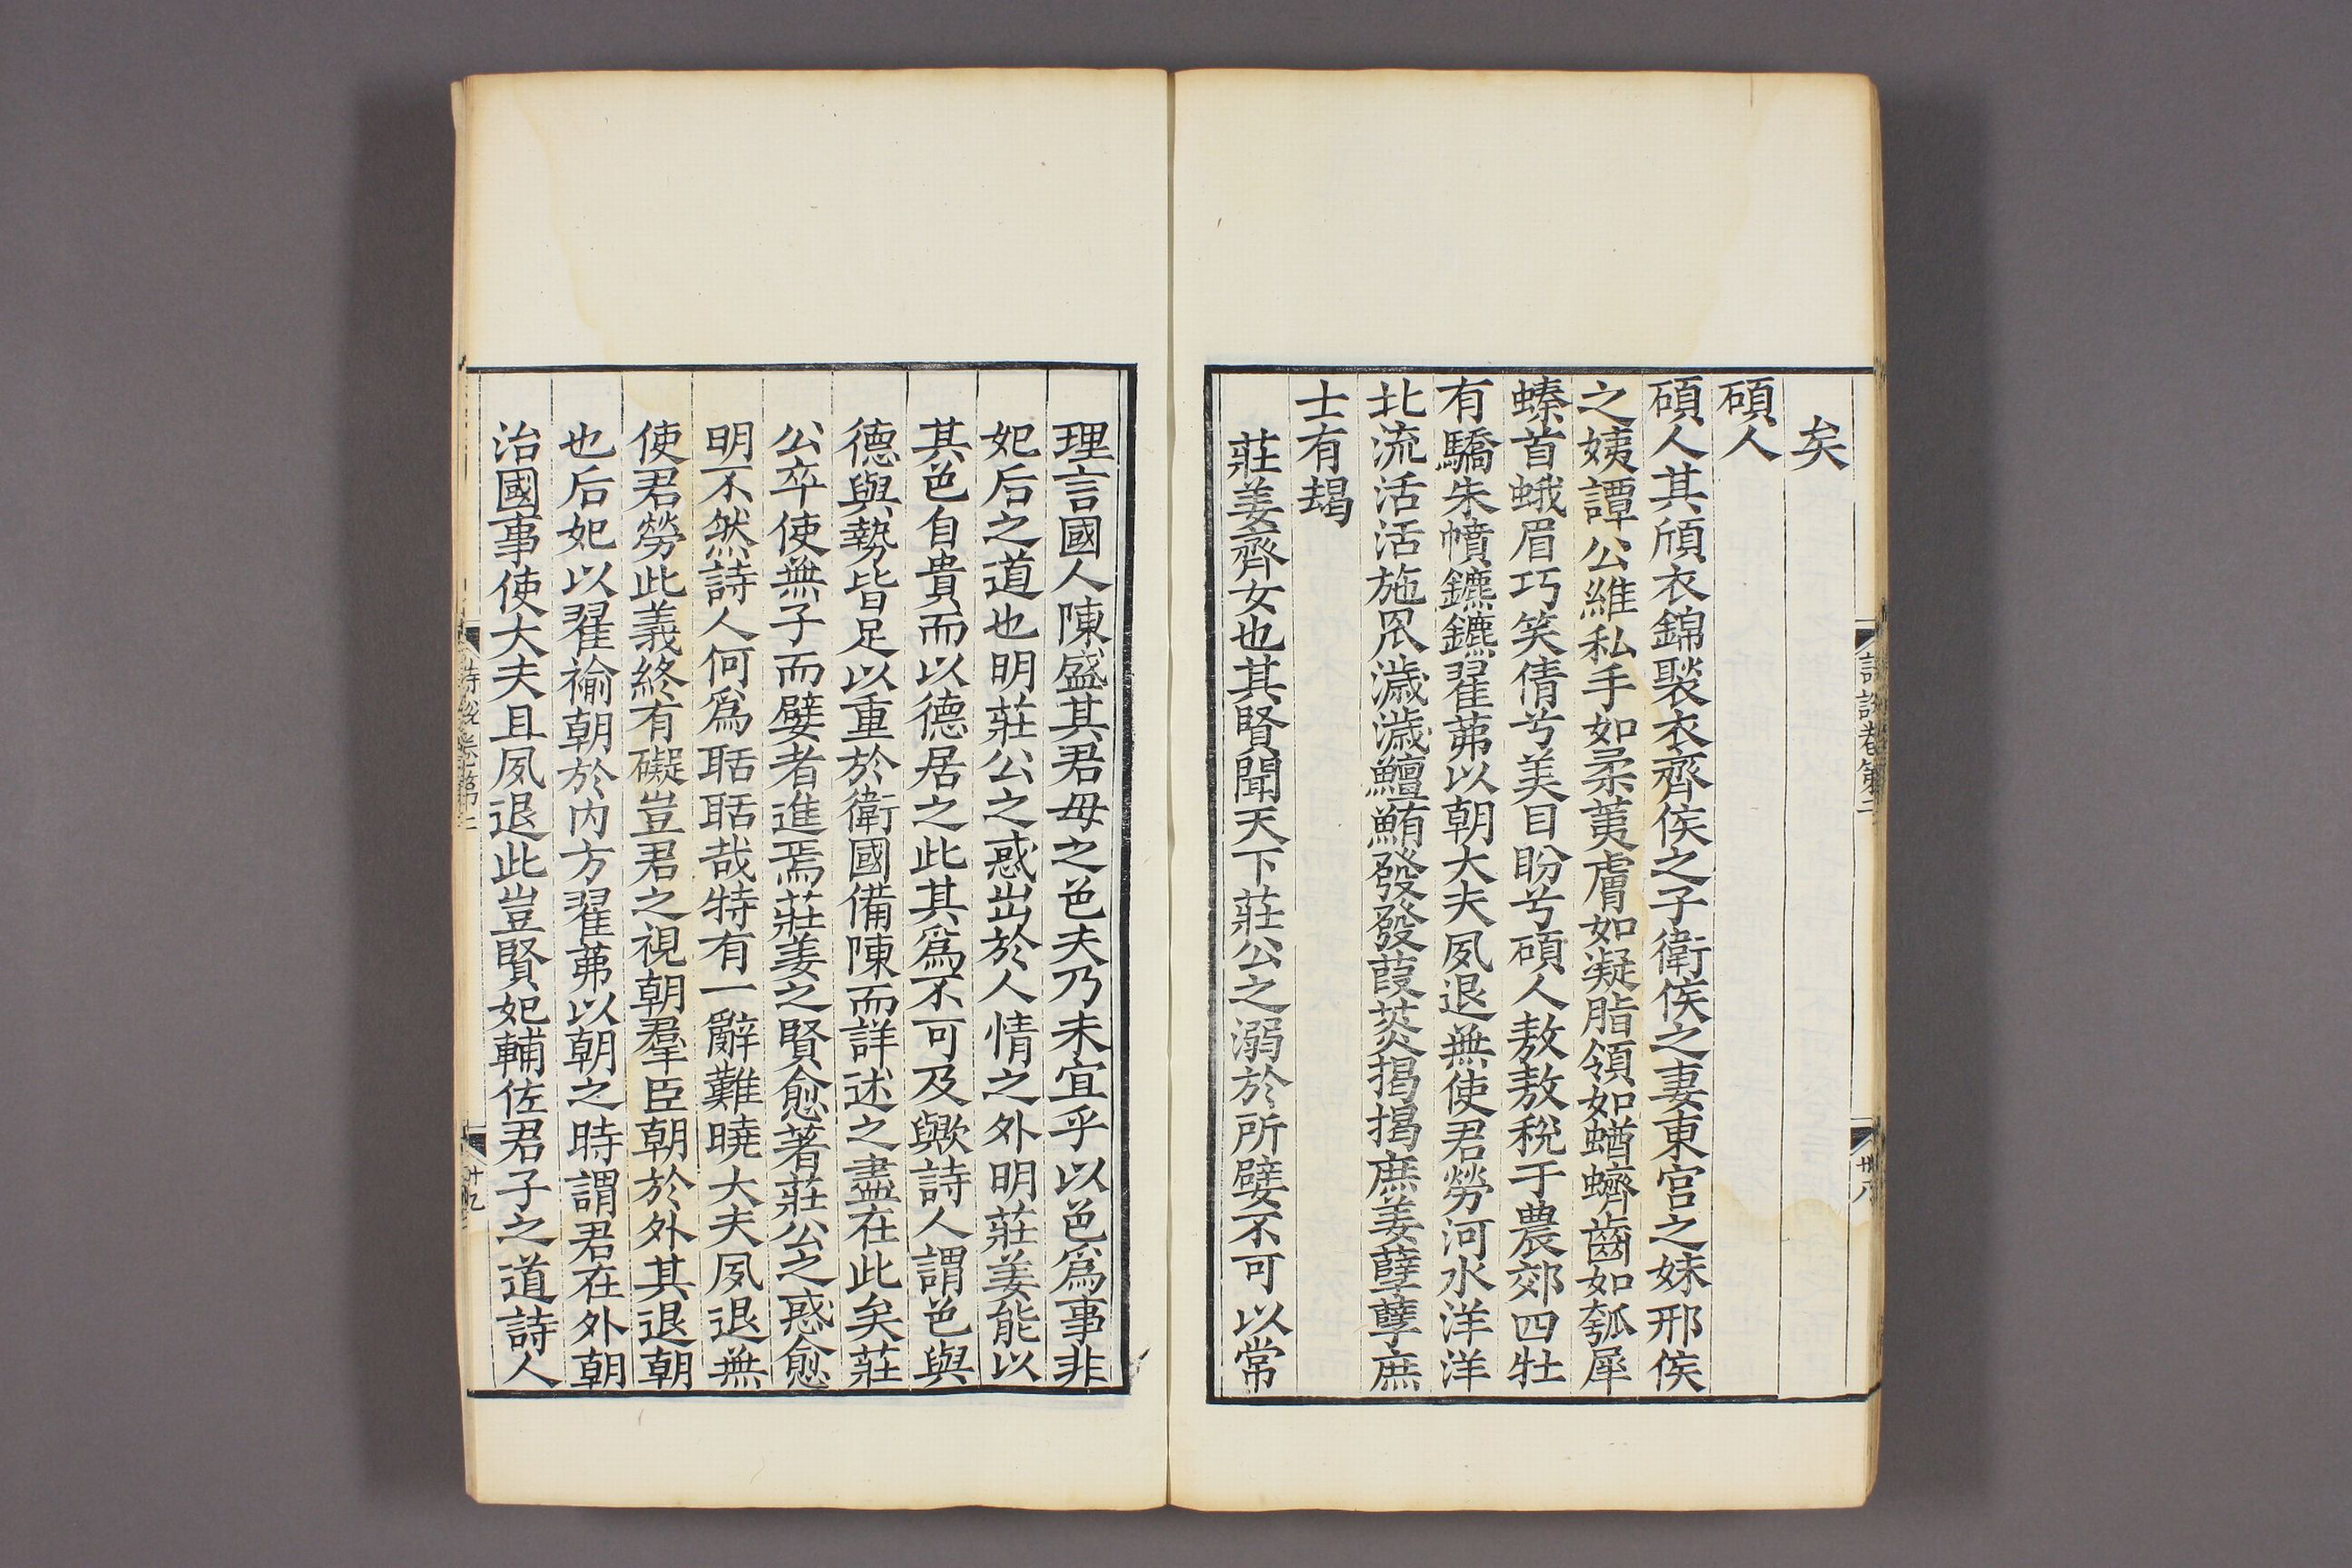 矣
碩人
碩人其頎衣錦褧衣齊侯之子衛侯之妻東宮之妹邢侯
之姨譚公維私手如柔荑膚如凝脂領如蝤蠐齒如瓠犀
螓首蛾眉巧笑倩兮美目盼兮碩人敖敖稅于農郊四牡
有驕朱幩鑣鑣翟茀以朝大夫夙退無使君勞河水洋洋
北流活活施罛濊濊鱣鮪發發葭菼揭揭庶姜孽孽庶
士有朅
莊姜齊女也其賢聞天下莊公之溺於所嬖不可以常
詩說卷第二
廿八
理言國人陳盛其君母之色夫乃未宜乎以色爲事非
妃后之道也明莊公之惑出於人情之外明莊姜能以
其色自貴而以德居之此其爲不可及歟詩人謂色與
德與勢皆足以重於衛國備陳而詳述之盡在此矣莊
公卒使無子而嬖者進焉莊姜之賢愈著莊公之惑愈
明不然詩人何爲聒聒哉特有一辭難曉大夫夙退無
使君勞此義終有礙豈君之視朝羣臣朝於外其退朝
也后妃以翟褕朝於内方翟茀以朝之時謂君在外朝
治國事使大夫且夙退此豈賢妃輔佐君子之道詩人
詩說卷第二
廿九